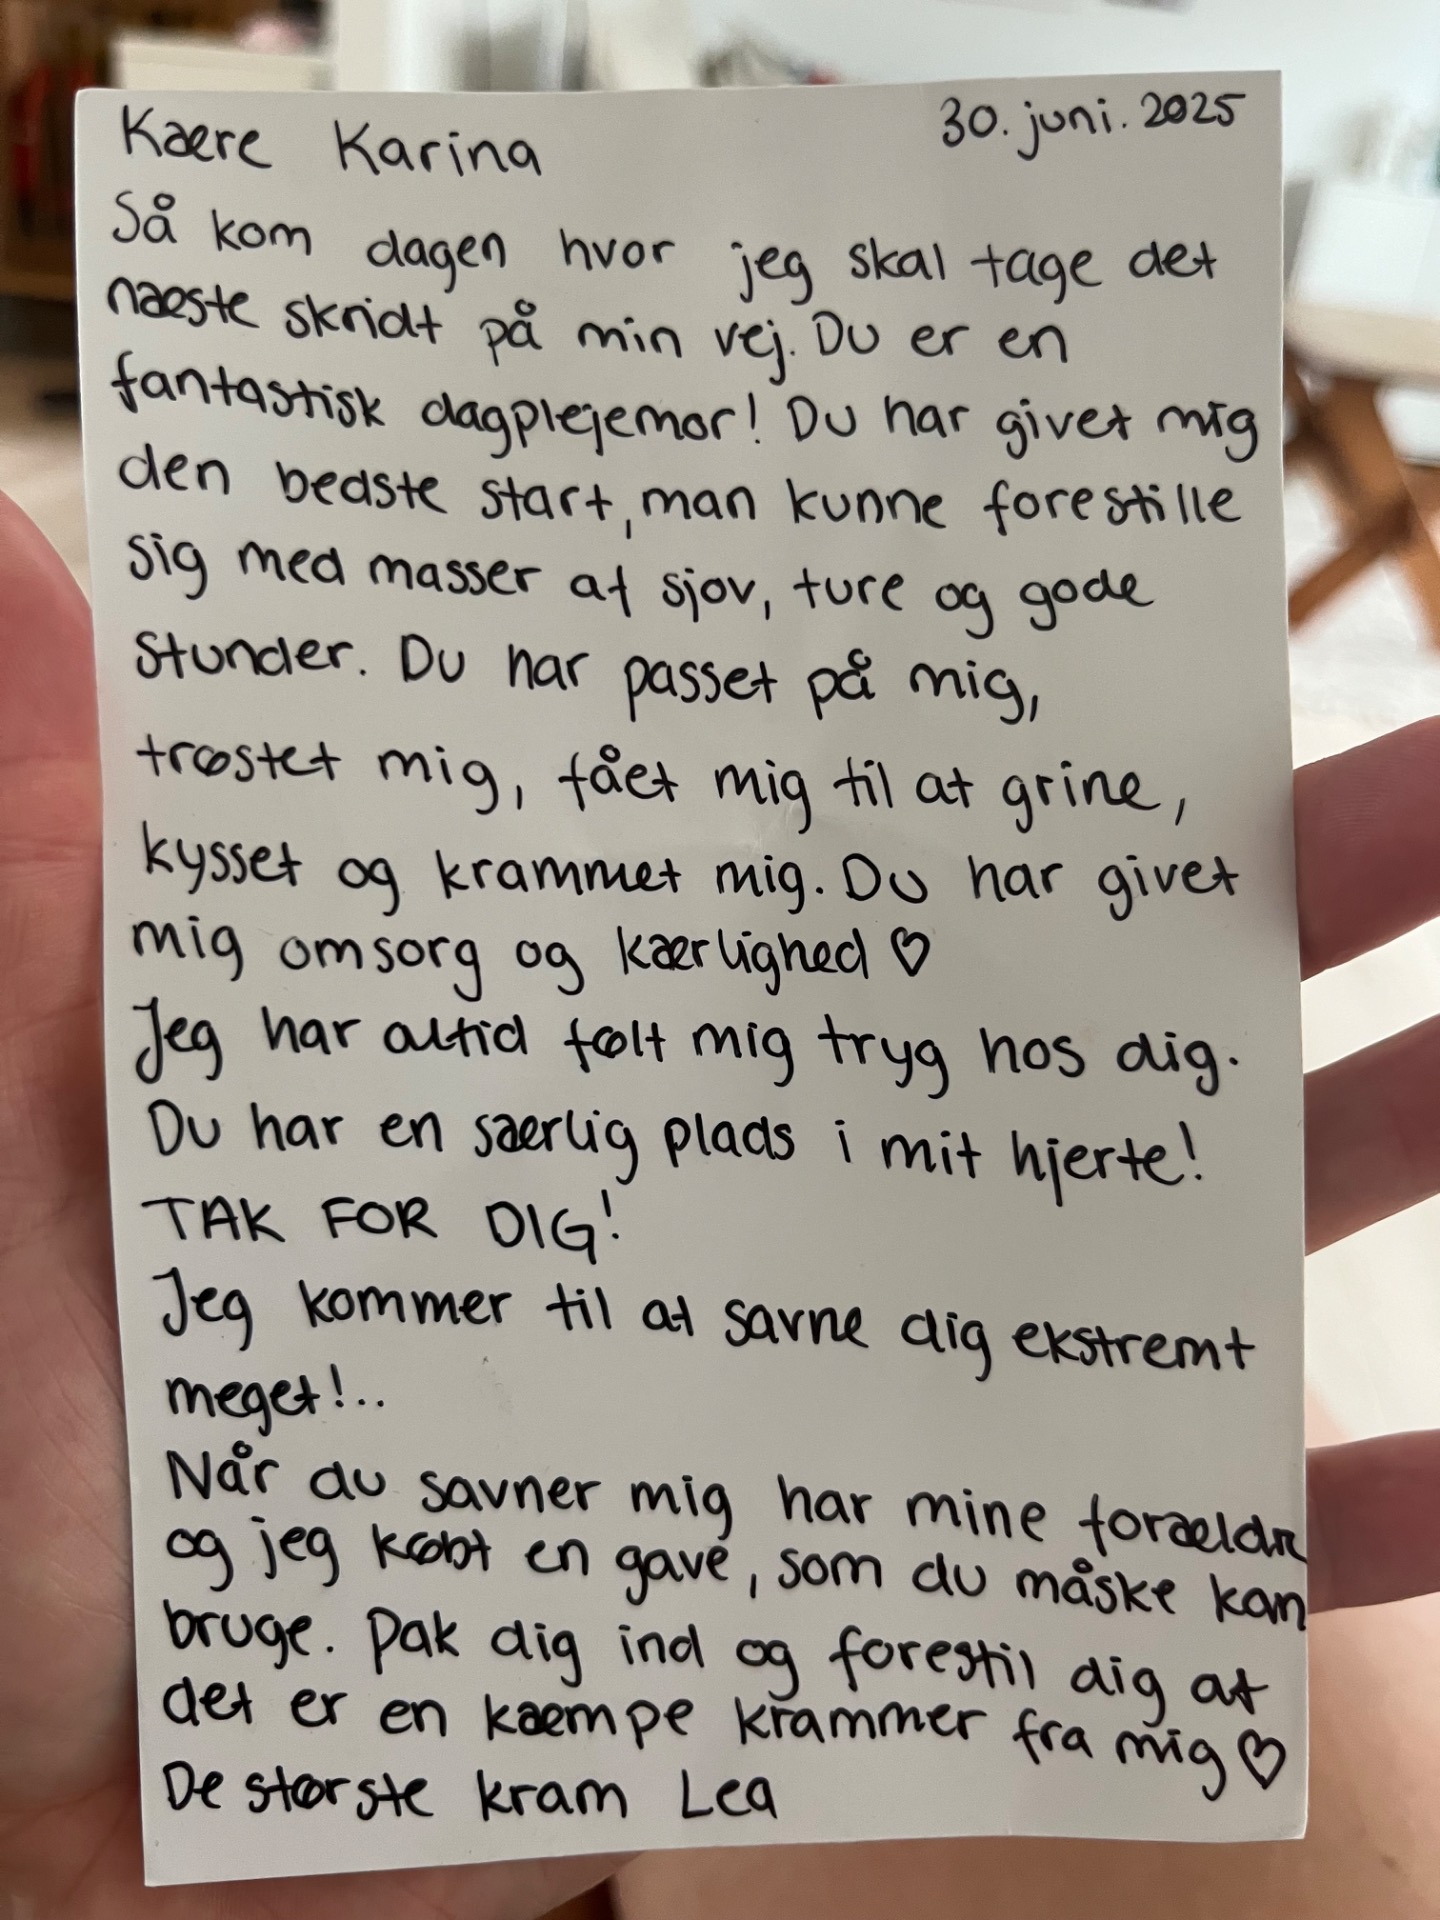 Kære Karina
30. juni. 2025
Så kom dagen hvor jeg skal tage det
næste skridt på min vej. Du er en
fantastisk dagplejemor! Du har givet mig
den bedste start, man kunne forestille
sig med masser af sjov, ture og gode
stunder. Du har passet på mig,
trøstet mig, fået mig til at grine,
kysset og krammet mig. Du har givet
mig omsorg og kærlighed ♡
Jeg har altid følt mig tryg hos dig.
Du har en særlig plads i mit hjerte!
TAK FOR DIG!
Jeg kommer til at savne dig ekstremt
meget!..
Når du savner mig har mine forældre
og jeg købt en gave, som du måske kan
bruge. Pak dig ind og forestil dig at
det er en kæmpe krammer fra mig ♡
De største kram Lea